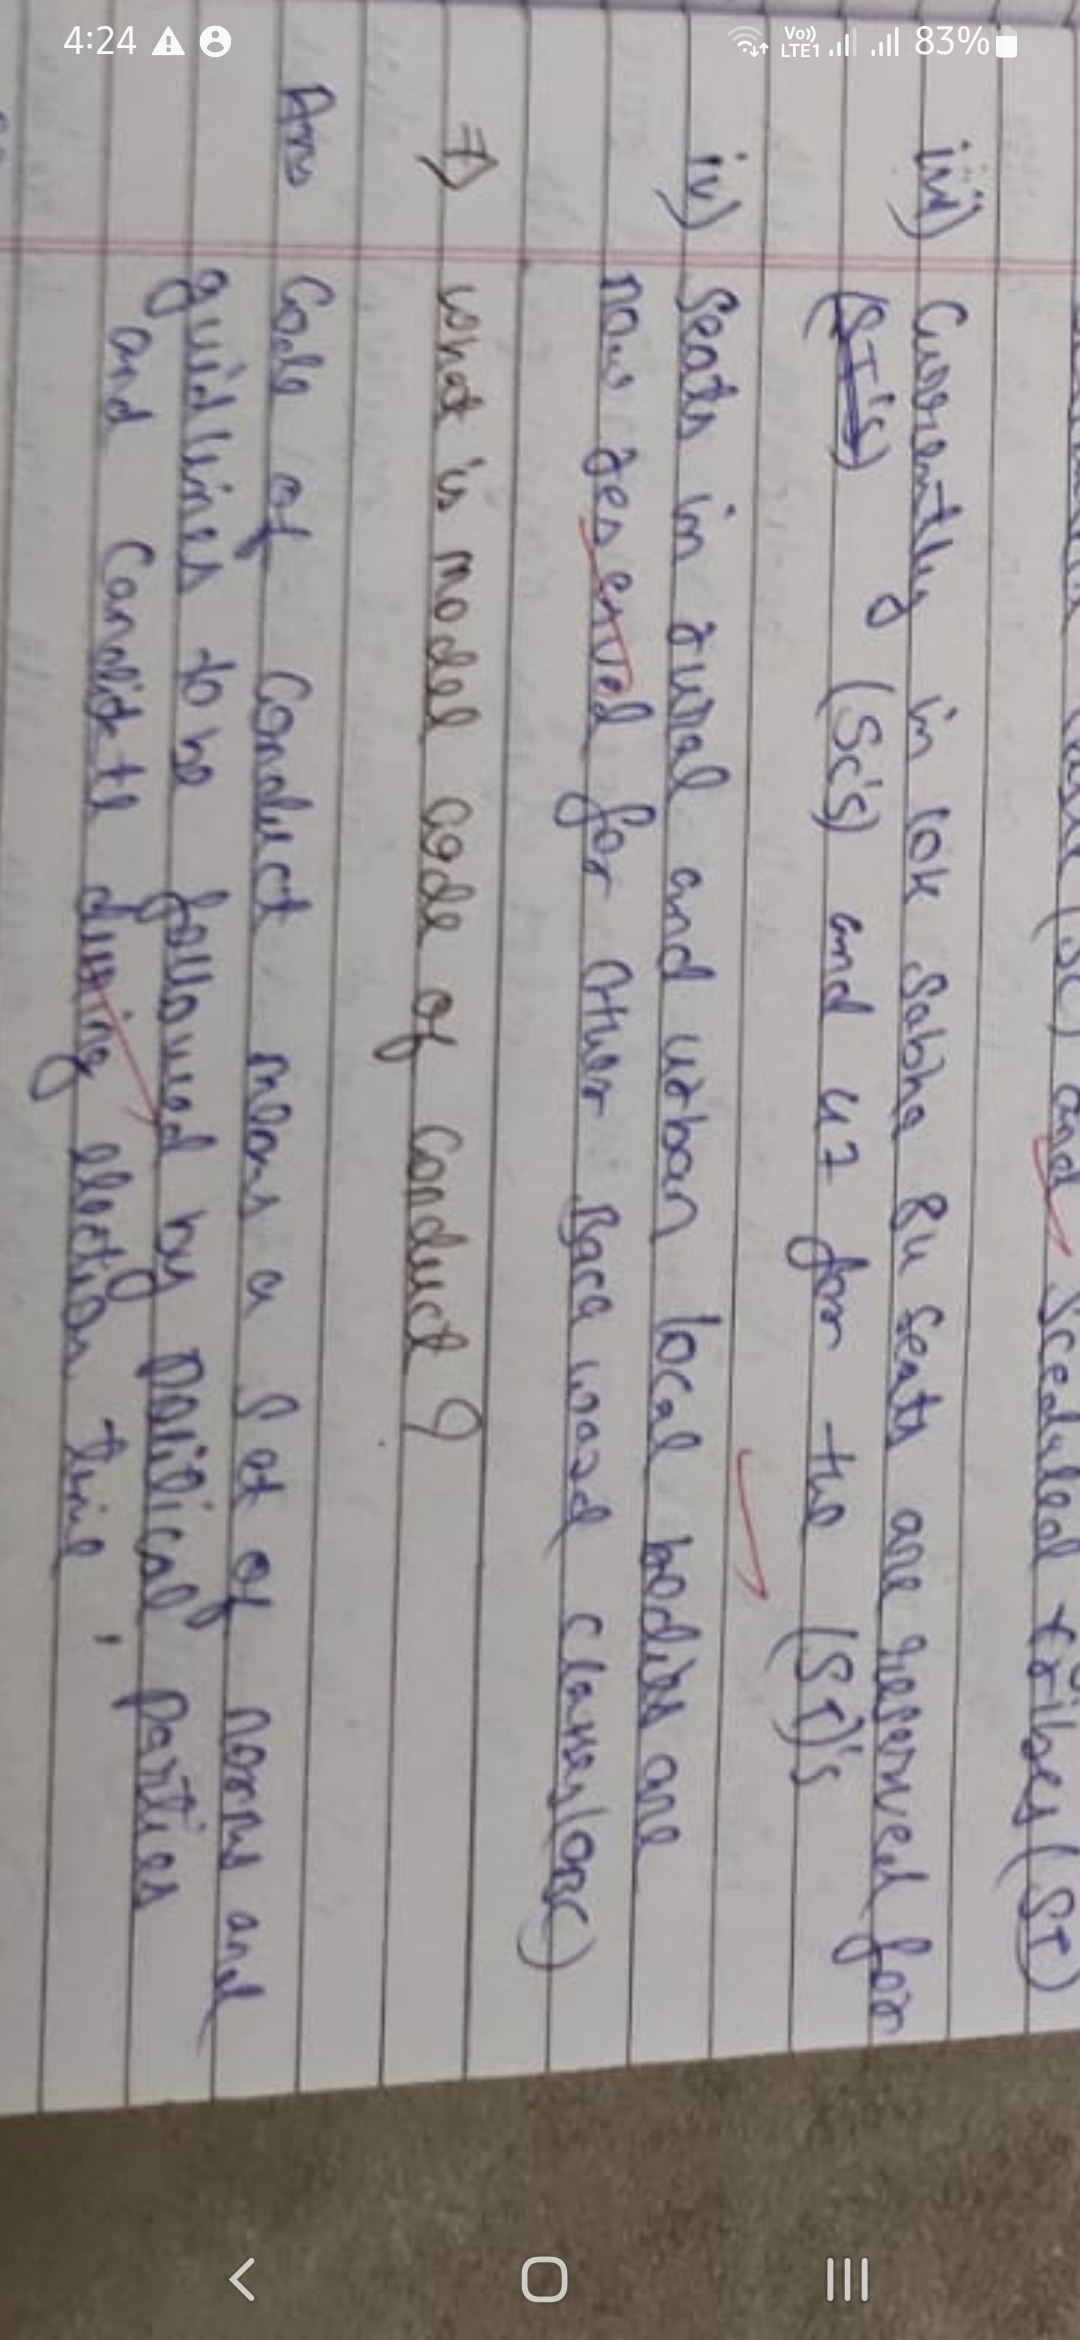 and Sceduled tribes (ST)
iii) Currently in lok Sabha 84 Seats are reserved for
(ST's) (Sc's) and 47 for the (ST)'s
iv) Seats in rural and urban local bodies are
now reserved for Other Backward Classes (OBC)
7) What is model code of Conduct ?
Ans Code of Conduct means a Set of norms and
guidlines to be followed by political parties
and Candidate during election time
4:24
Vo)) LTE1 83%